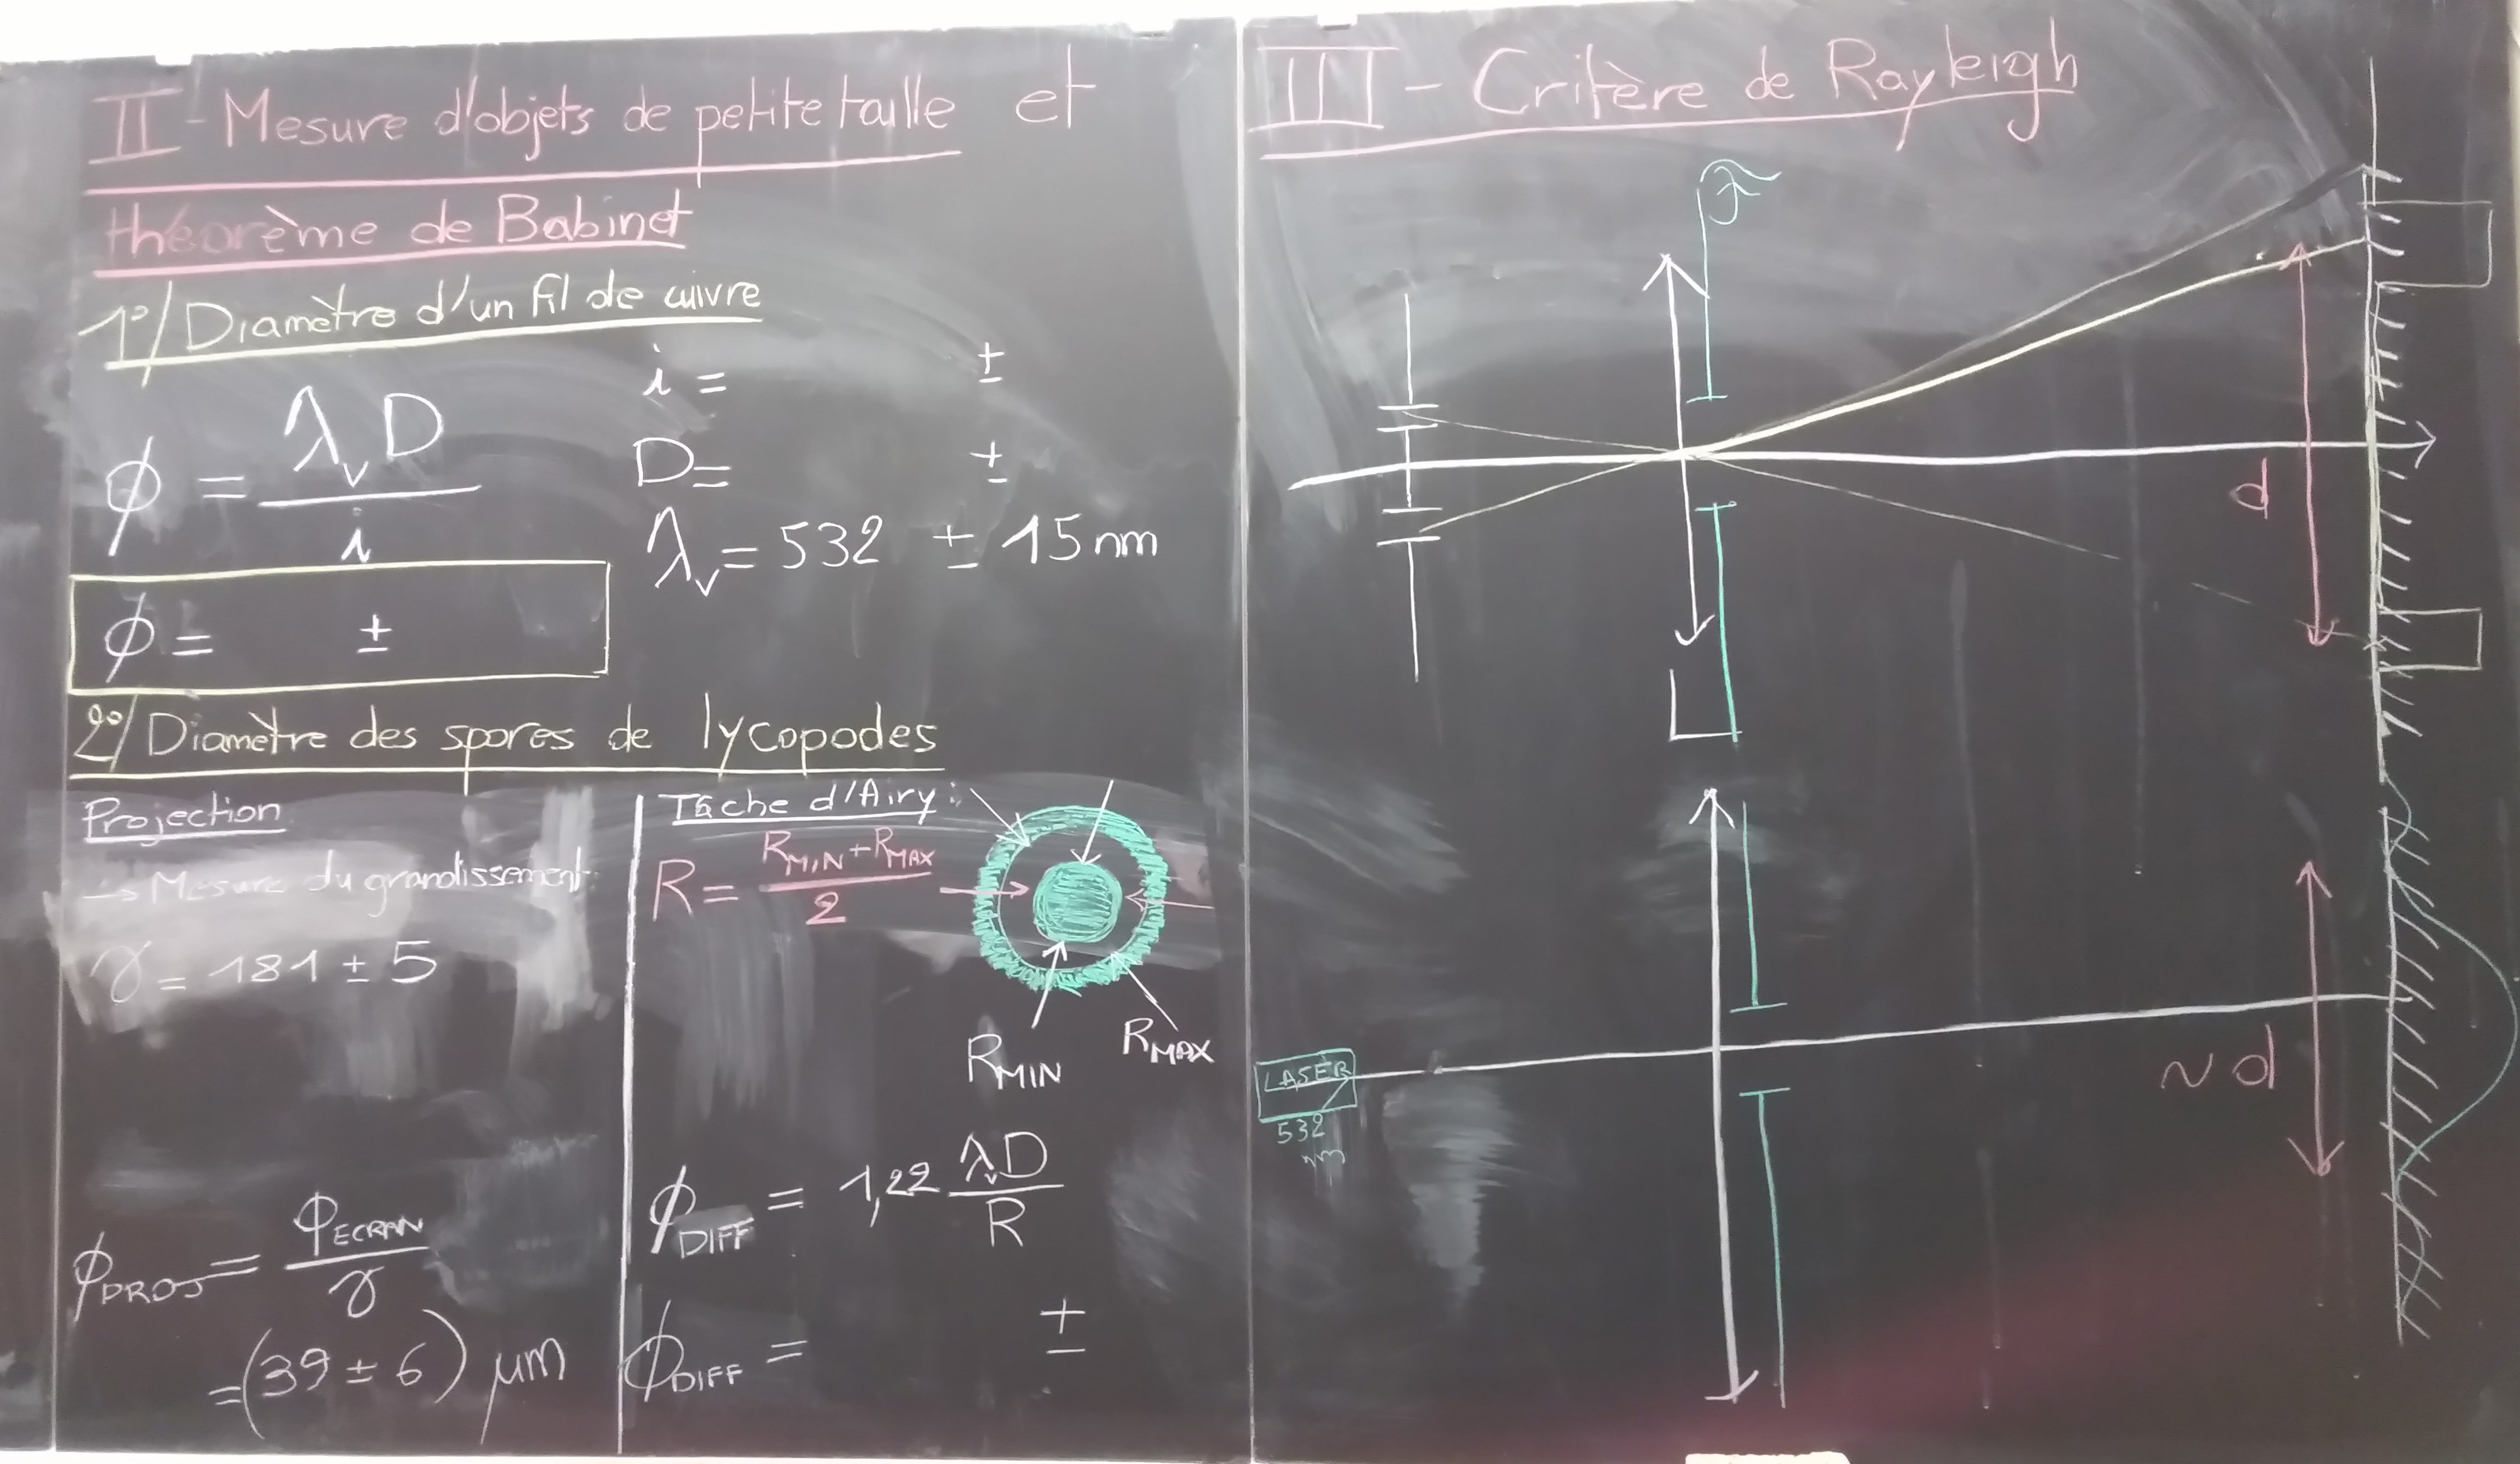 II - Mesure d'objets de petite taille et
théorème de Babinet
1°/ Diamètre d'un fil de cuivre
ϕ = λ_v D / i
i = ±
D = ±
λ_v = 532 ± 15 nm
ϕ = ±
2°/ Diamètre des spores de lycopodes
Projection
→ Mesure du grandissement
γ = 181 ± 5
ϕ_PROJ = ϕ_ECRAN / γ
= (39 ± 6) µm
Tâche d'Airy :
R = (R_MIN + R_MAX) / 2
R_MIN
R_MAX
ϕ_DIFF = 1,22 λ_v D / R
ϕ_DIFF = ±
III - Critère de Rayleigh
d
LASER
532
nm
~ d